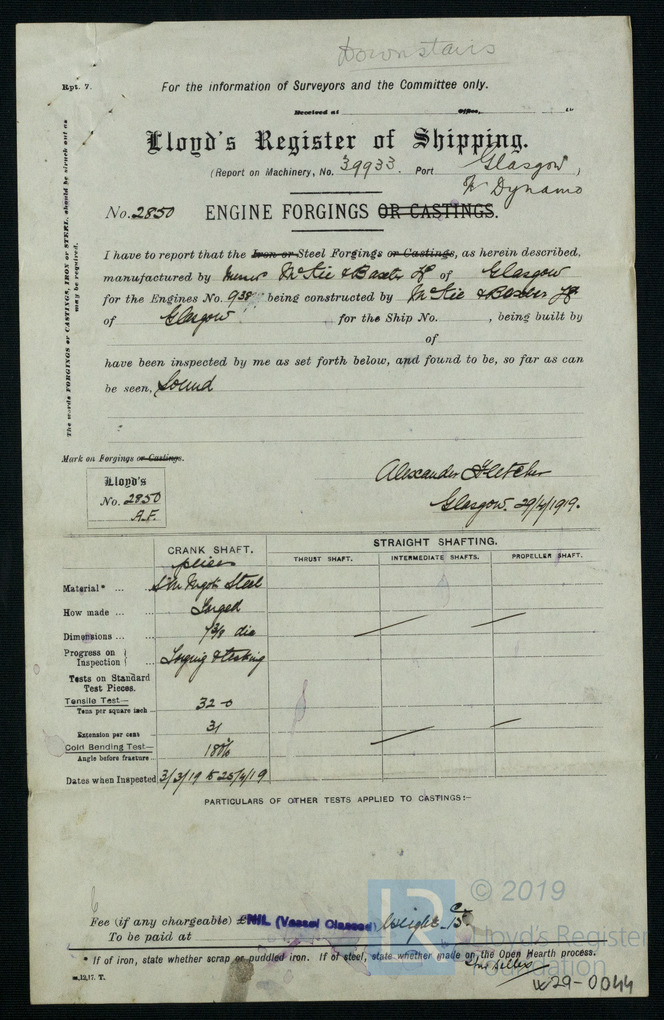 Downstairs
Rpt. 7.
For the information of Surveyors and the Committee only.
Received at Office, 19
Lloyd's Register of Shipping.
(Report on Machinery, No. 39933. Port Glasgow)
Fr Dynamo
No. 2850 ENGINE FORGINGS OR CASTINGS.
The words FORGINGS or CASTINGS, IRON or STEEL, should be struck out as
may be required.
I have to report that the Iron or Steel Forgings or Castings, as herein described,
manufactured by Messrs McKie & Baxter Ld of Glasgow
for the Engines No. 938 being constructed by McKie & Baxter Ld
of Glasgow for the Ship No. , being built by
of
have been inspected by me as set forth below, and found to be, so far as can
be seen, Sound
Mark on Forgings or Castings.
Lloyd's
No. 2850
A.F.
Alexander Fletcher
Glasgow. 29/4/1919.
CRANK SHAFT. STRAIGHT SHAFTING.
THRUST SHAFT. INTERMEDIATE SHAFTS. PROPELLER SHAFT.
pieces
Material* ... S.M. Ingot Steel
How made ... Forged
Dimensions ... dia
Progress on Inspection ... Forging & testing
Tests on Standard
Test Pieces.
Tensile Test— 32-0
Tons per square inch
Extension per cent 31
Cold Bending Test— 180°
Angle before fracture ..
Dates when Inspected 3/3/19 to 25/4/19
PARTICULARS OF OTHER TESTS APPLIED TO CASTINGS:–
Fee (if any chargeable) £ NIL (Vessel Classed) Weight 15
To be paid at
* If of iron, state whether scrap or puddled iron. If of steel, state whether made on the Open Hearth process.
m.12,17. T.
© 2019
LR
Lloyd's Register
Foundation
W29-0044